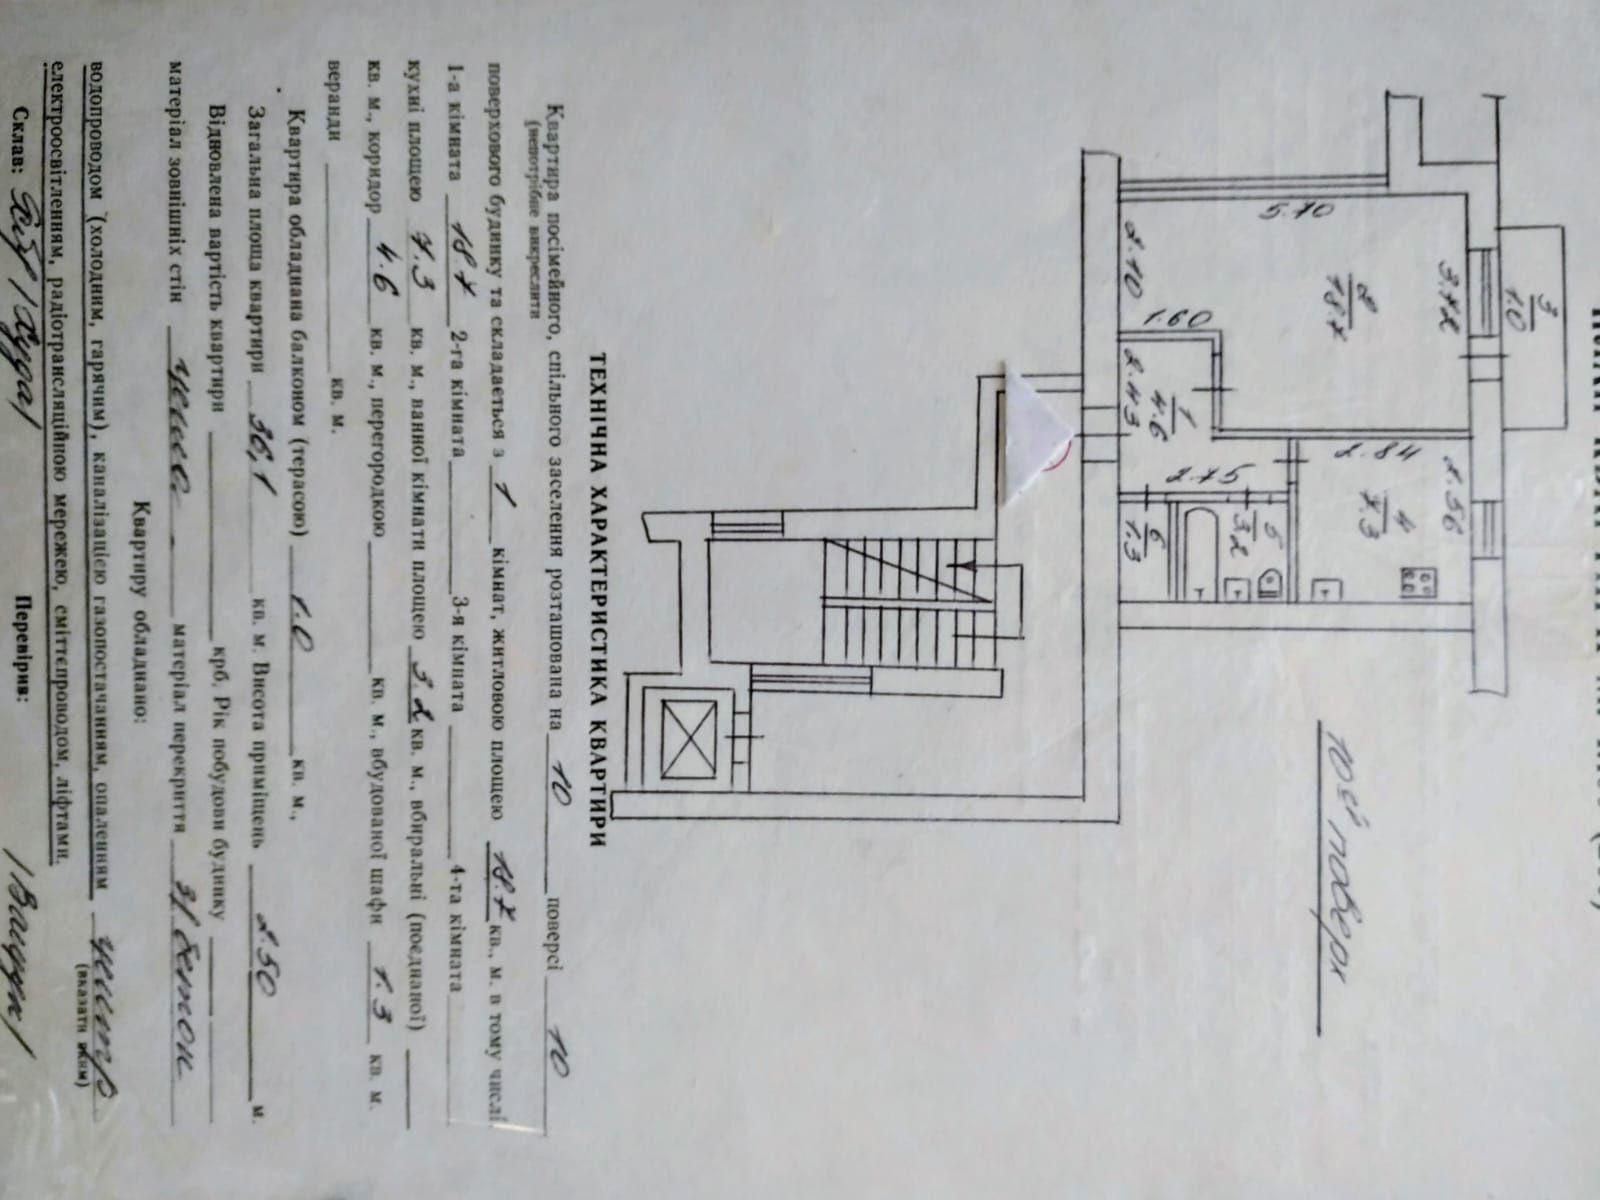 10ий поверх
3
1.0
3.72
2
18.7
5.10
2.10
1.60
2.43
1
4.6
2.75
2.84
2.56
4
7.3
5
3.2
6
1.3
ТЕХНІЧНА ХАРАКТЕРИСТИКА КВАРТИРИ
Квартира посімейного, спільного заселення розташована на 10 поверсі 10
(непотрібне викреслити)
поверхового будинку та складається з 1 кімнат, житловою площею 18.7 кв., м. в тому числі
1-а кімната 18.7 2-га кімната 3-я кімната 4-та кімната
кухні площею 7.3 кв. м., ванної кімнати площею 3.2 кв. м., вбиральні (поєднаної)
кв. м., коридор 4.6 кв. м., перегородкою кв. м., вбудованої шафи 1.3 кв. м.
веранди кв. м.
Квартира обладнана балконом (терасою) 1.0 кв. м.,
Загальна площа квартири 36,1 кв. м. Висота приміщень 2.50 м.
Відновлена вартість квартири крб. Рік побудови будинку
матеріал зовнішніх стін матеріал перекриття з/бетон
Квартиру обладнано:
водопроводом (холодним, гарячим), каналізацією газопостачанням, опаленням центр
(вказати яким)
електроосвітленням, радіотрансляційною мережею, сміттєпроводом, ліфтами.
Склав: Перевірив: